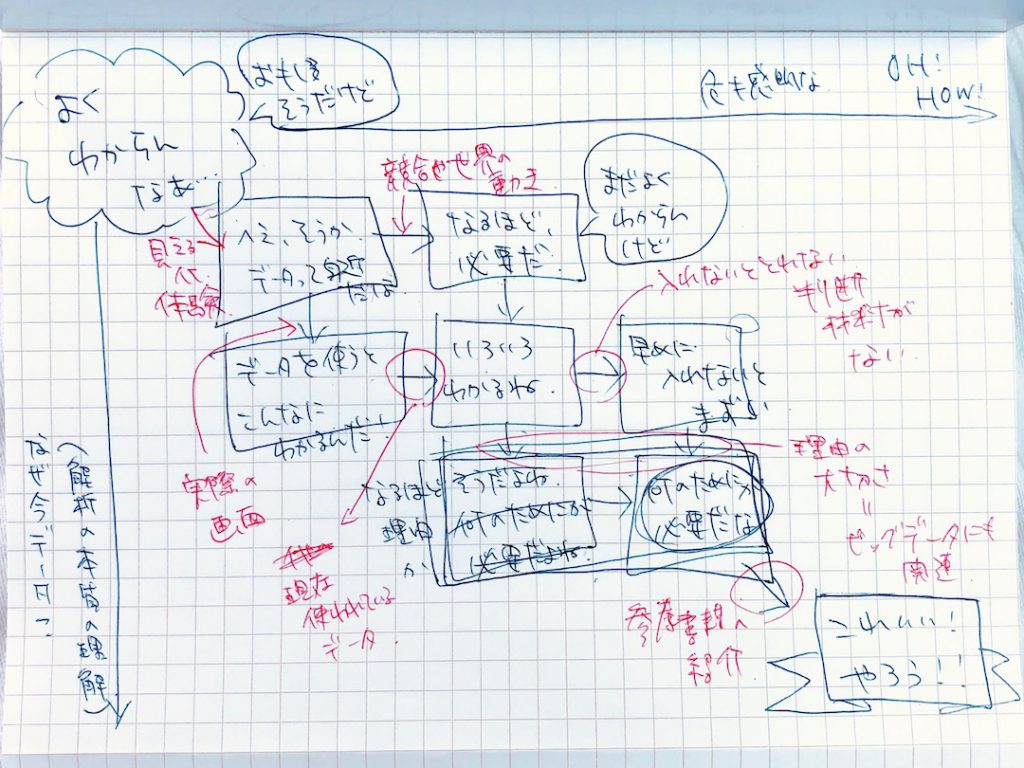 よく
わからん
なぁ…
おもしろ
そうだけど
危キ感的な
OH!
HOW!
競合や世界の
動き
まだよく
わからん
けど
へぇ、そうか
データって身近
だな
なるほど、
必要だ
見える
体験
入れないととれない
判断
材料が
ない
データを使うと
こんなに
わかるんだ!
いろいろ
わかるね
早めに
入れないと
まずい
実際の
画面
なるほど
理由
か
そうだよね
何のためにか
必要だよね
何のためにか
必要だな
理由の
大切さ
=
ビッグデータにも
関連
現在
使われている
データ
参考書籍の
紹介
これいい!
やろう!!
なぜ今データ?
(解析の本質の理解)